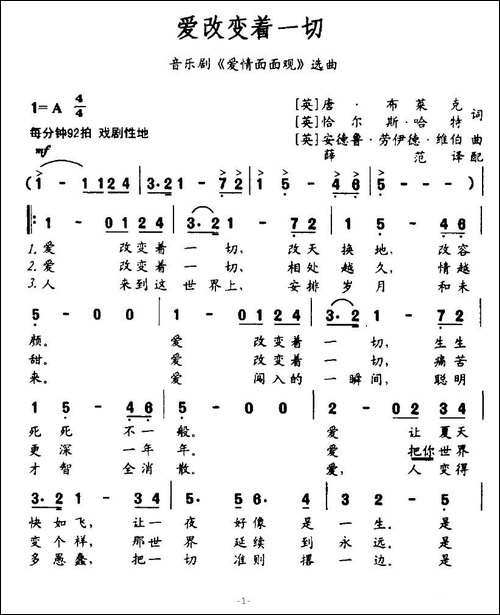 爱改变着一切
音乐剧《爱情面面观》选曲
1=A 4/4
每分钟92拍 戏剧性地
[英]唐·布莱克
[英]恰尔斯·哈特 词
[英]安德鲁·劳伊德·维伯 曲
薛范 译配
mf
(1 - 1124 | 3·21 - 72 | 15 - 46 | 5·5 - - ) |
1 - 0124 | 3·21 - 72 | 15 - 46 |
1.爱 改变着一切, 改天换地, 改容
2.爱 改变着一切, 相处越久, 情越
3.人 来到这世界上, 安排岁月和未
5 - 00 | 1 - 0124 | 3·21 - 72 |
颜。 爱 改变着一切, 生生
甜。 爱 改变着一切, 痛苦
来。 爱 闯入的一瞬间, 聪明
15 - 46 | 5 - 00 | 2 - 0234 |
死死不一般。 爱 让夏天
更深一年年。 爱 把你世界
才智全消散。 爱, 人变得
3·2124 | 5·56·4 | 3 - 2·5 |
快如飞, 让一夜好像是一生。是
变个样, 那世界延续到永远。是
多愚蠢, 把一切准则撂一边。是
-1-